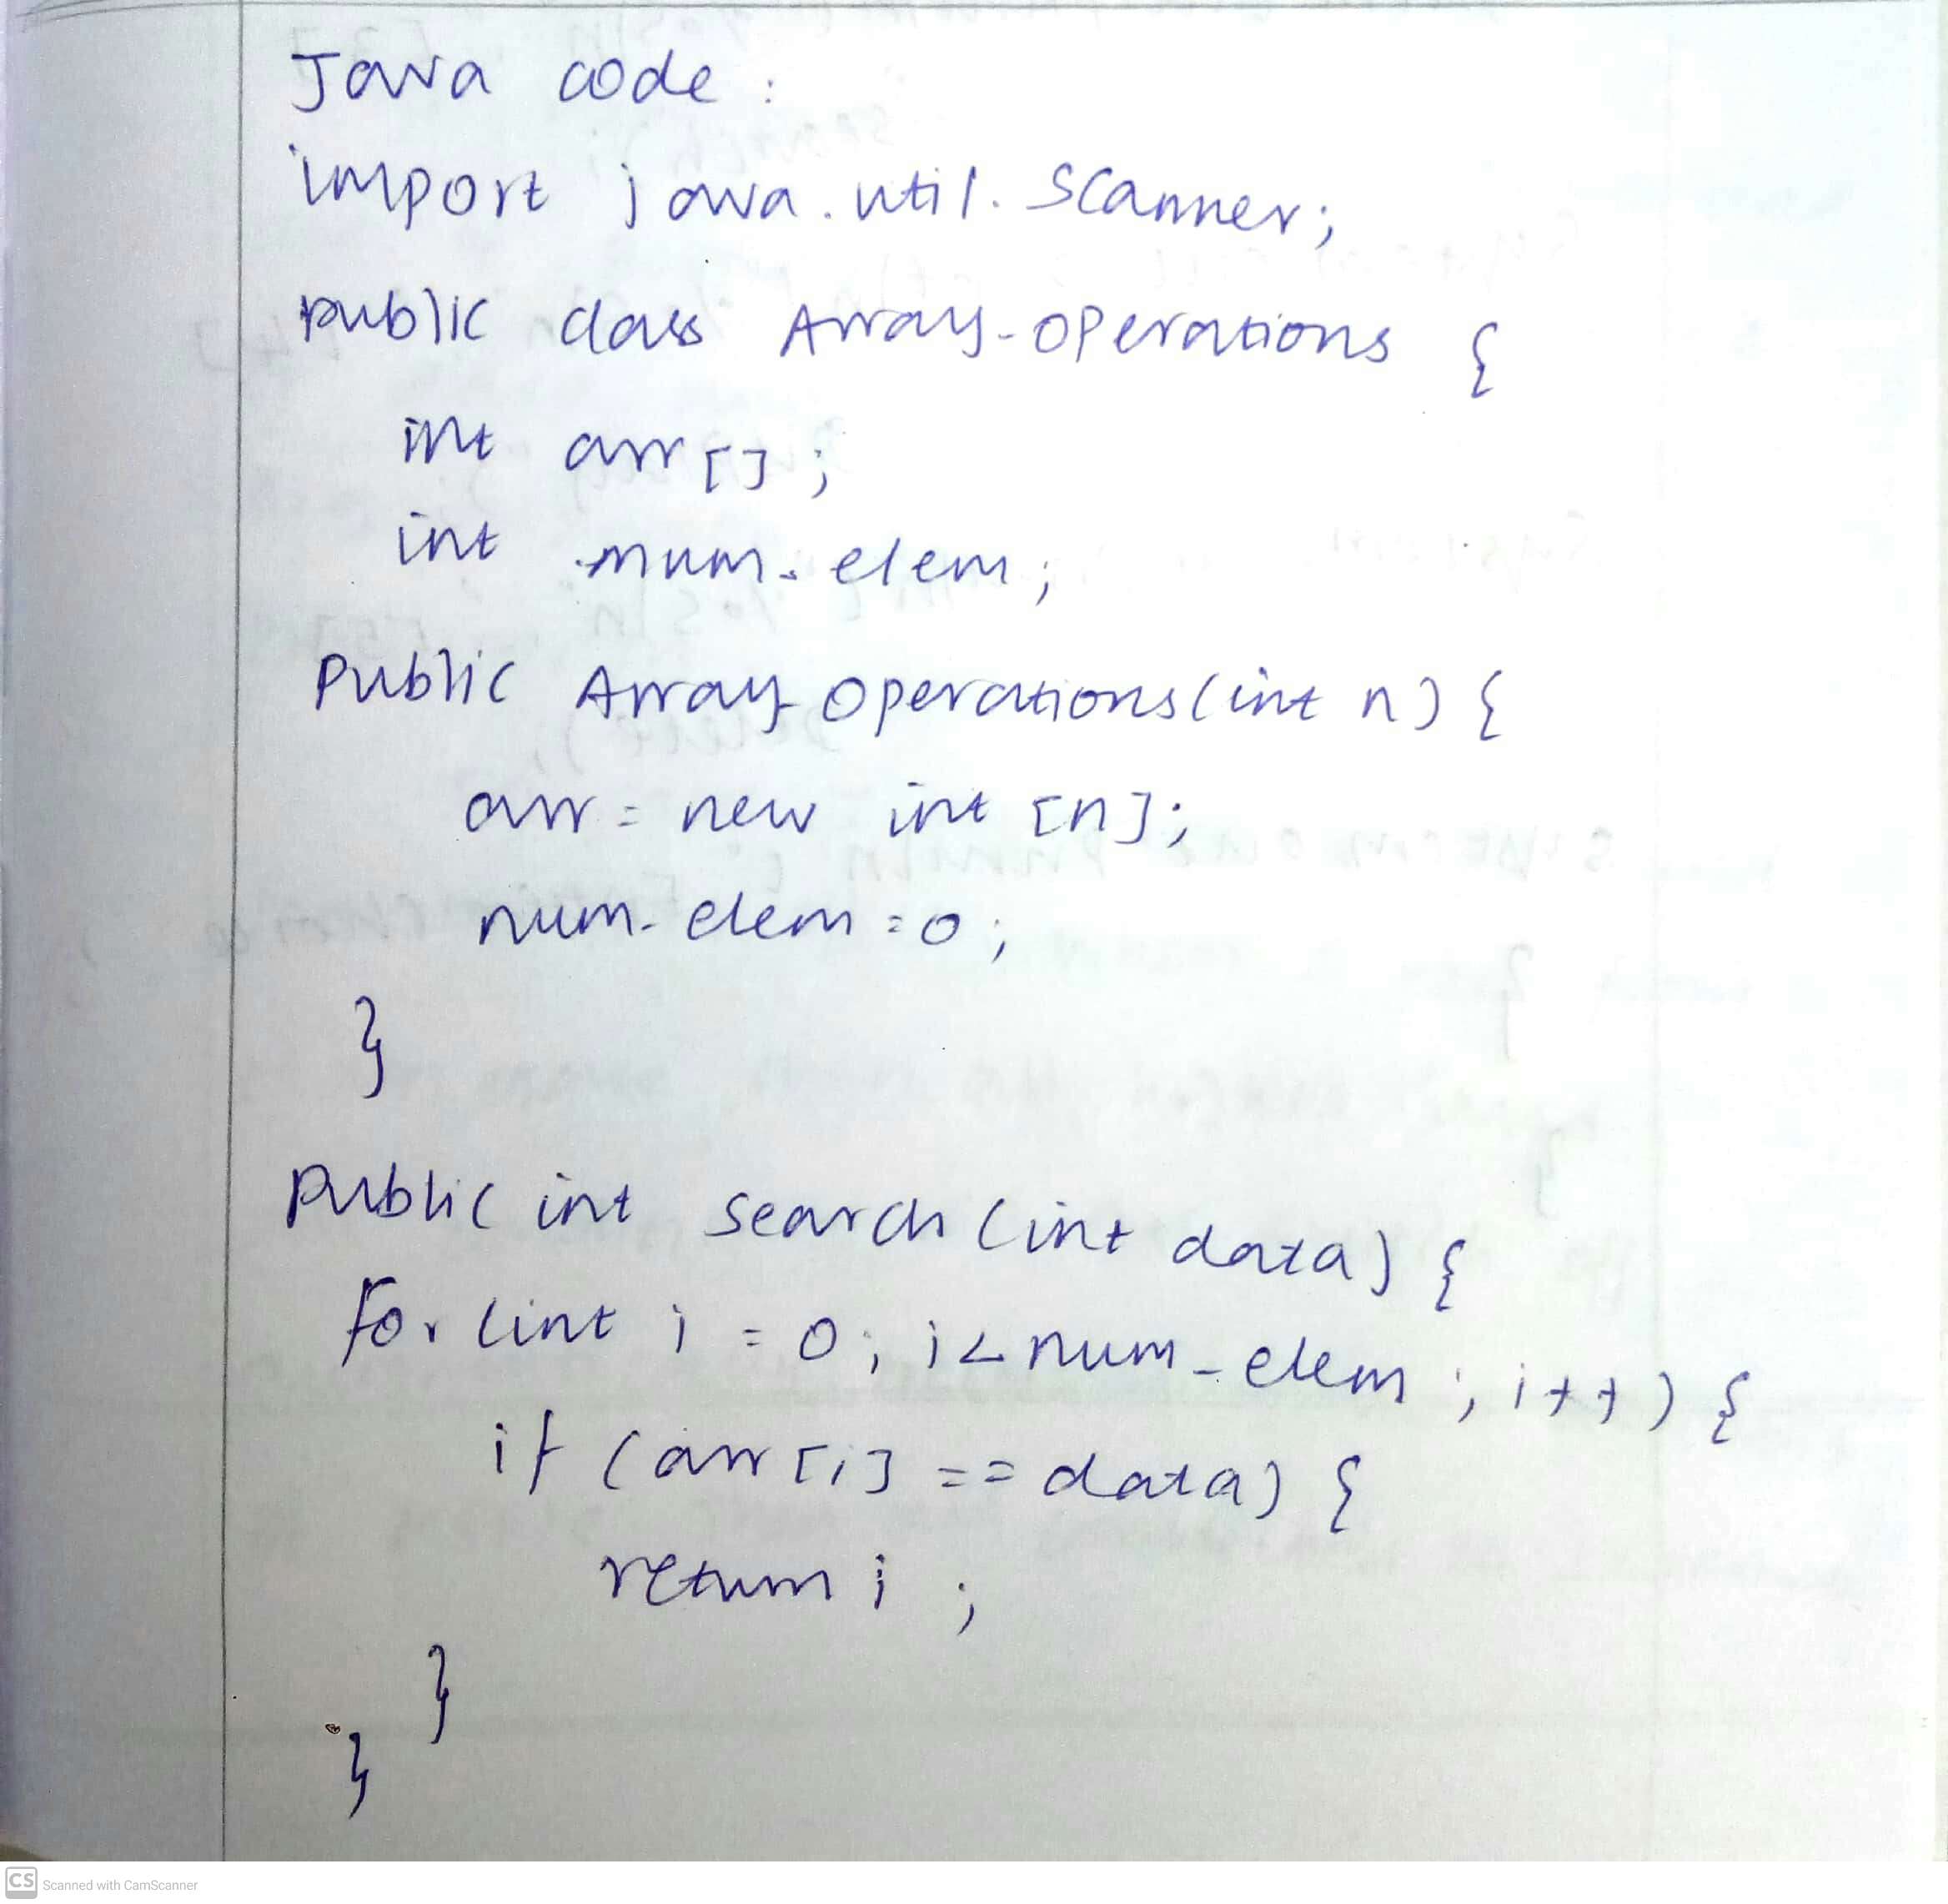 Java code :
import java.util.Scanner;
public class Array_operations {
int arr[];
int num_elem;
Public Array_operations(int n) {
arr = new int [n];
num_elem = 0;
}
Public int search (int data) {
for (int i = 0; i < num_elem ; i++) {
if (arr[i] == data) {
return i ;
}
}
CS Scanned with CamScanner